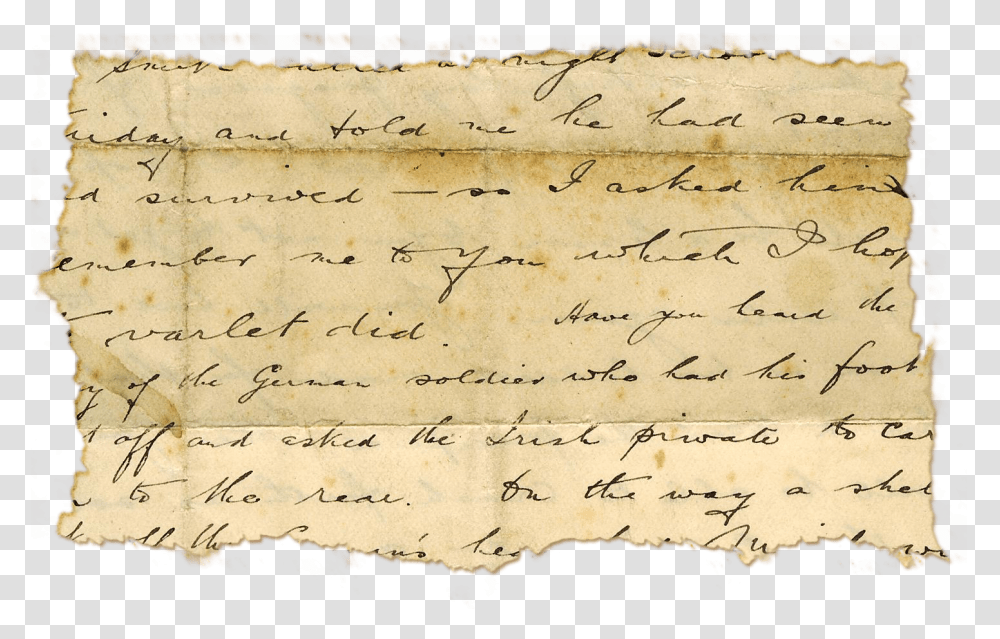 night
riday and told me he had seen
d survived — so I asked him
emember me to You which I hop
t varlet did. Have you heard the
y of the German soldier who had his foot
t off and asked the Irish private to car
to the rear. On the way a shel